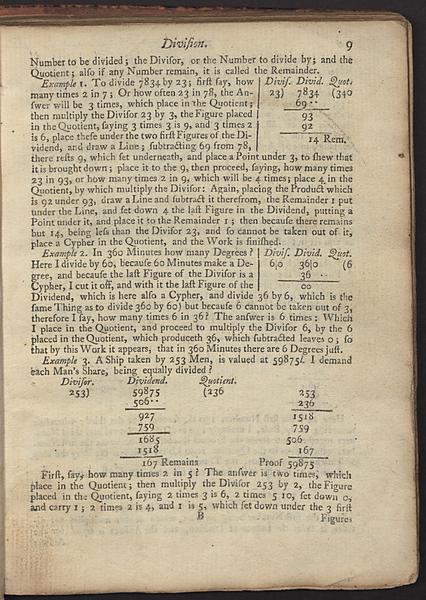 Diviſion. 9
Number to be divided; the Diviſor, or the Number to divide by; and the
Quotient; alſo if any Number remain, it is called the Remainder.
Example 1. To divide 7834 by 23; firſt ſay, how
many times 2 in 7; Or how often 23 in 78, the An-
ſwer will be 3 times, which place in the Quotient;
then multiply the Diviſor 23 by 3, the Figure placed
in the Quotient, ſaying 3 times 3 is 9, and 3 times 2
is 6, place theſe under the two firſt Figures of the Di-
vidend, and draw a Line; ſubtracting 69 from 78,
Diviſ. Divid. Quot.
23) 7834 (340
69··
93
92
14 Rem.
there reſts 9, which ſet underneath, and place a Point under 3, to ſhew that
it is brought down; place it to the 9, then proceed, ſaying, how many times
23 in 93, or how many times 2 in 9, which will be 4 times; place 4 in the
Quotient, by which multiply the Diviſor: Again, placing the Product which
is 92 under 93, draw a Line and ſubtract it therefrom, the Remainder 1 put
under the Line, and ſet down 4 the laſt Figure in the Dividend, putting a
Point under it, and place it to the Remainder 1; then becauſe there remains
but 14, being leſs than the Diviſor 23, and ſo cannot be taken out of it,
place a Cypher in the Quotient, and the Work is finiſhed.
Example 2. In 360 Minutes how many Degrees?
Here I divide by 60, becauſe 60 Minutes make a De-
gree, and becauſe the laſt Figure of the Diviſor is a
Cypher, I cut it off, and with it the laſt Figure of the
Diviſ. Divid. Quot.
6|0 36|0 (6
36 ··
00
Dividend, which is here alſo a Cypher, and divide 36 by 6, which is the
ſame Thing as to divide 360 by 60) but becauſe 6 cannot be taken out of 3,
therefore I ſay, how many times 6 in 36? The anſwer is 6 times: Which
I place in the Quotient, and proceed to multiply the Diviſor 6, by the 6
placed in the Quotient, which produceth 36, which ſubtracted leaves 0; ſo
that by this Work it appears, that in 360 Minutes there are 6 Degrees juſt.
Example 3. A Ship taken by 253 Men, is valued at 59875l. I demand
each Man's Share, being equally divided?
Diviſor. Dividend. Quotient.
253) 59875 (236 253
506·· 236
927 1518
759 759
1685 506
1518 167
167 Remains Proof 59875
Firſt, ſay, how many times 2 in 5? The anſwer is two times, which
place in the Quotient; then multiply the Diviſor 253 by 2, the Figure
placed in the Quotient, ſaying 2 times 3 is 6, 2 times 5 10, ſet down 0,
and carry 1; 2 times 2 is 4, and 1 is 5, which ſet down under the 3 firſt
B Figures